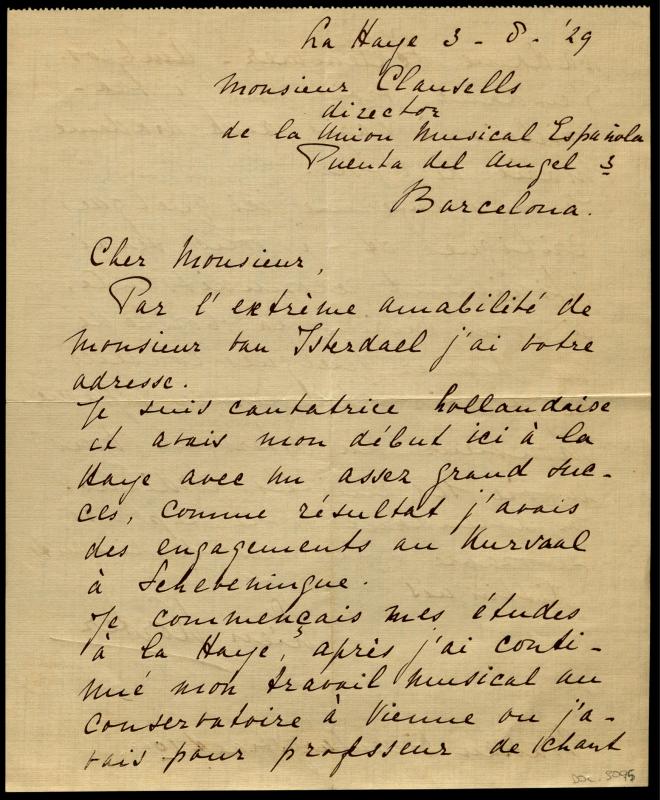 La Haye 3 - 8 - '29
Monsieur Clausells
director
de la Union Musical Española
Puenta del Amgel 3
Barcelona.
Cher Monsieur,
Par l'extrème amabilité de
monsieur van Isterdael j'ai votre
adresse.
Je suis cantatrice hollandaise
et avais mon début ici à la
Haye avec un assez grand suc-
ces, comme résultat j'avais
des engagements au Kurvaal
à Scheveningue.
Je commençais mes études
à la Haye, après j'ai conti-
nué mon travail musical au
conservatoire à Vienne ou j'a-
vais pour profsseur de chant
Doc. 5095